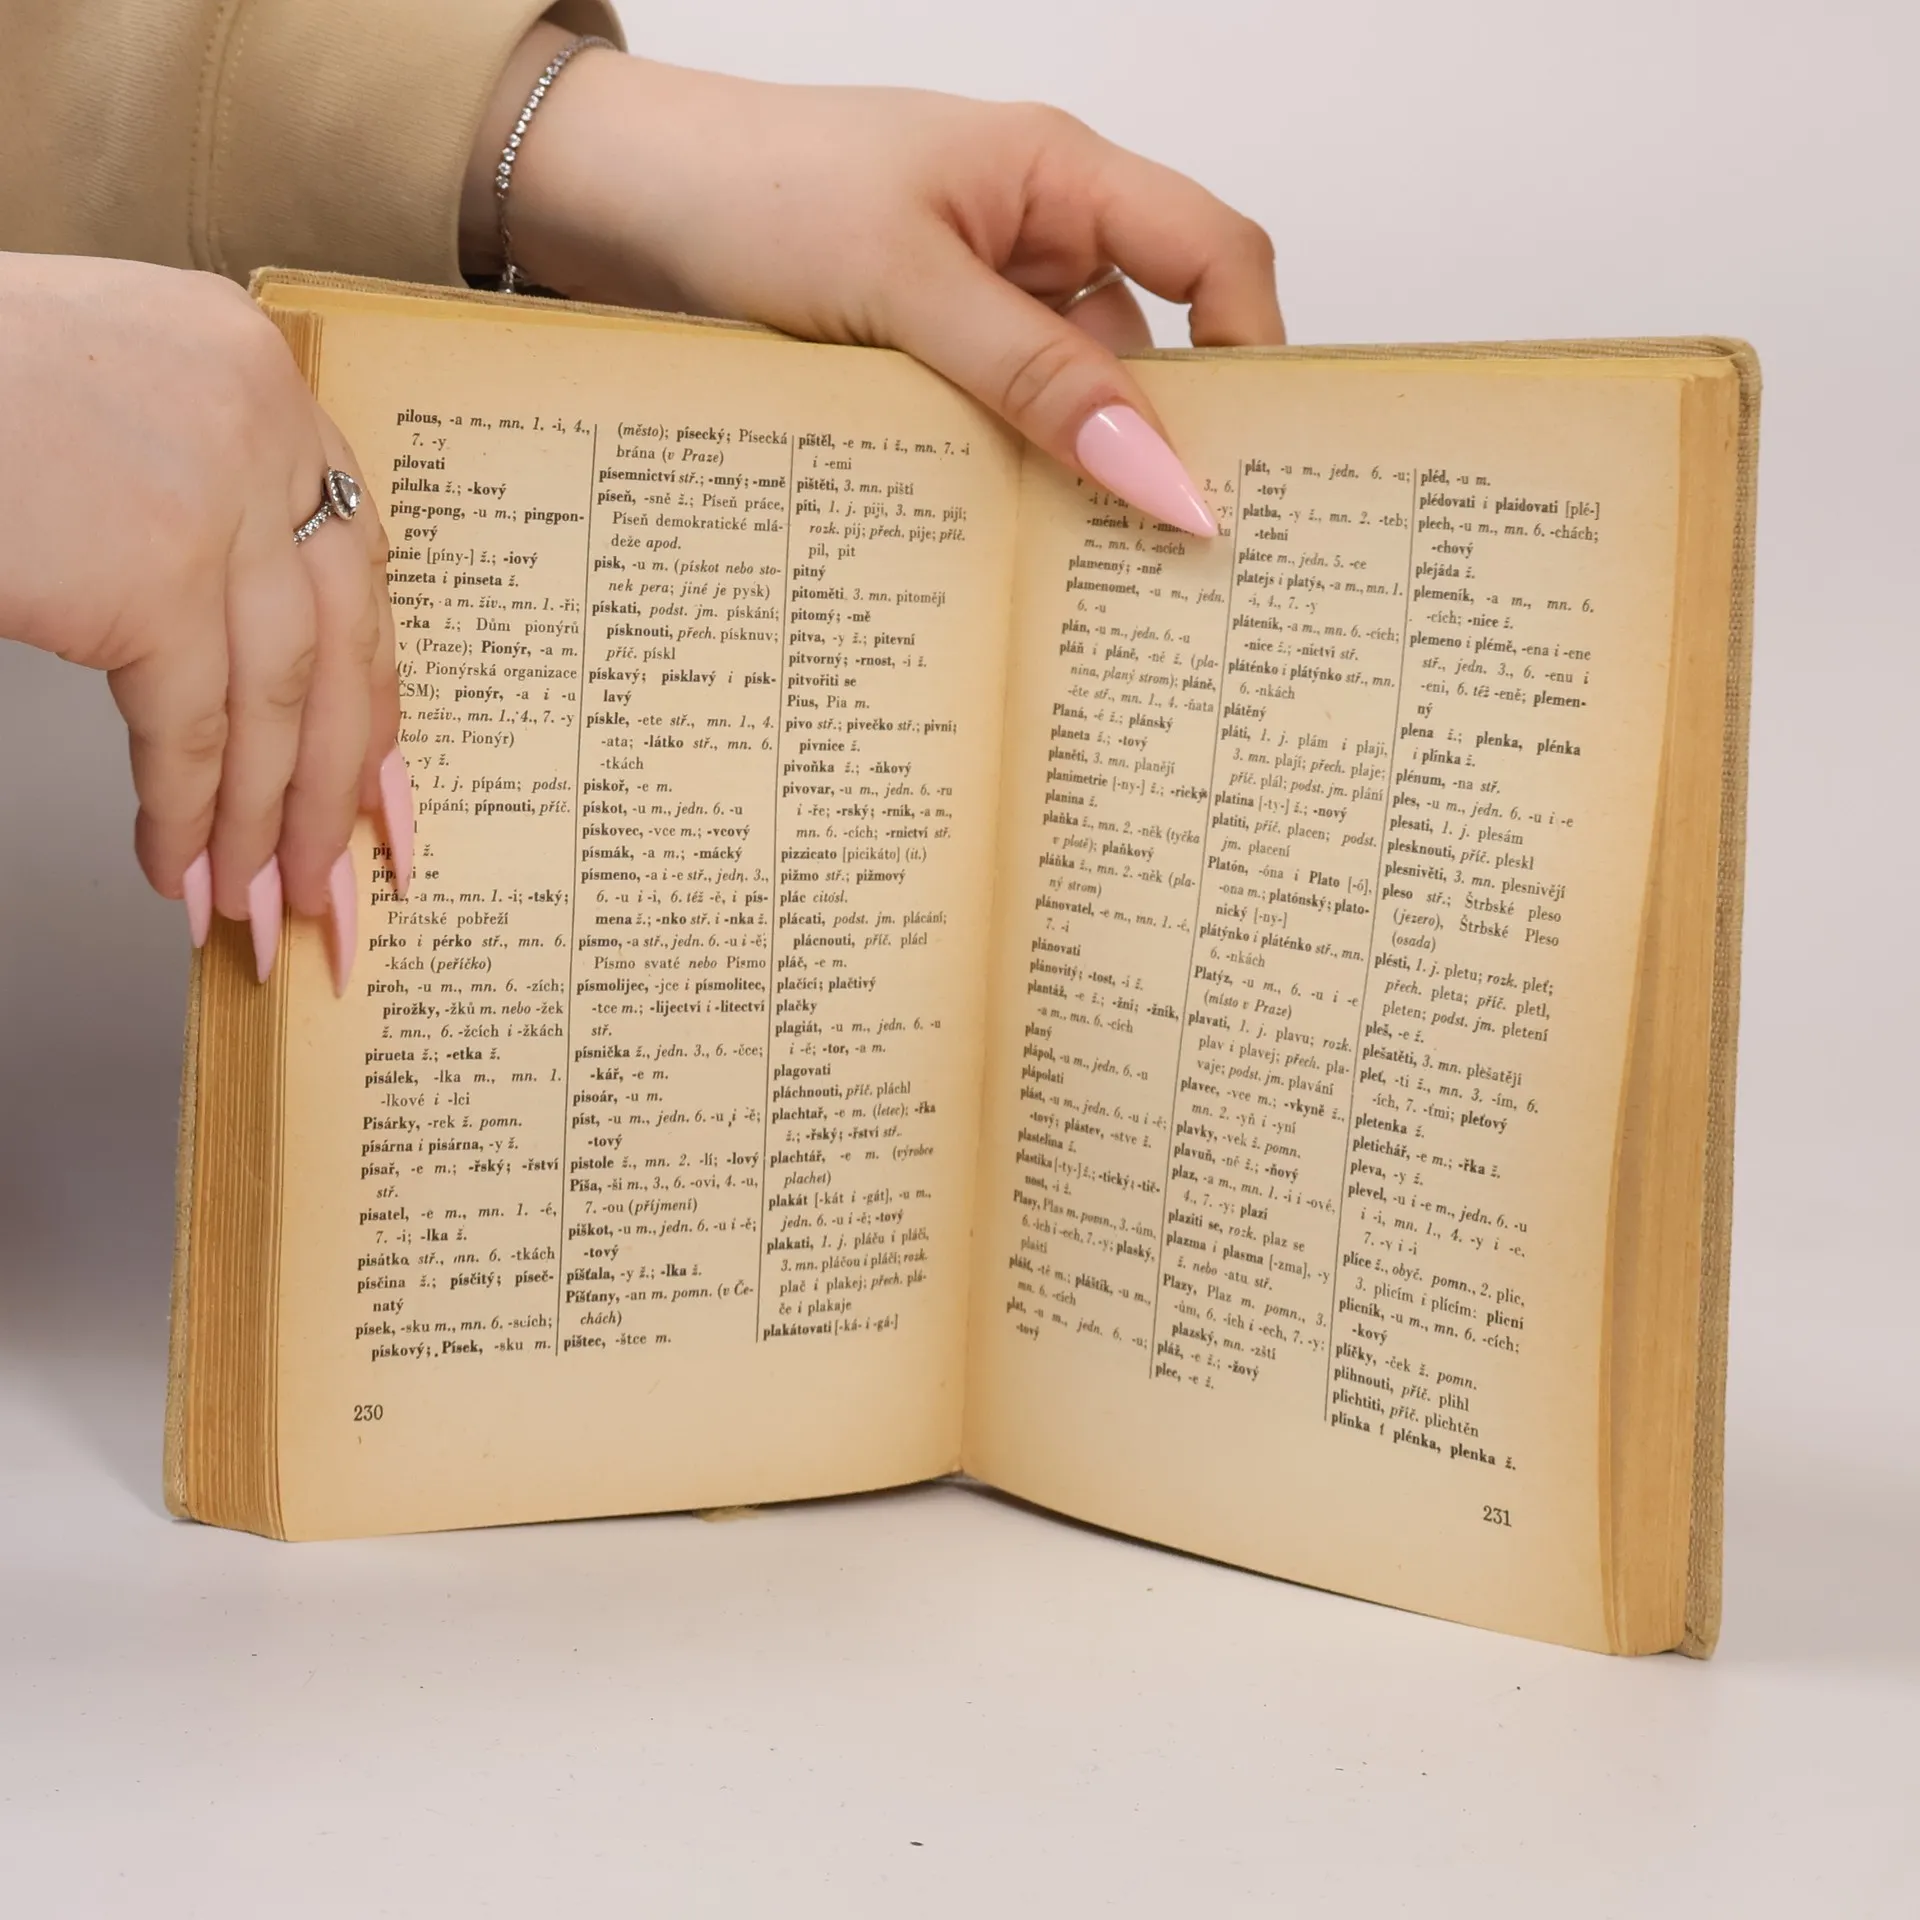 pilous, -a m., mn. 1. -i, 4.,
7. -y
pilovati
pilulka ž.; -kový
ping-pong, -u m.; pingpon-
gový
pinie [píny-] ž.; -iový
pinzeta i pinseta ž.
-a m. živ., mn. 1. -ři;
-rka ž.; Dům pionýrů
v (Praze); Pionýr, -a m.
(tj. Pionýrská organizace
ČSM); pionýr, -a i -u
neživ., mn. 1., 4., 7. -y
kolo zn. Pionýr)
-y ž.
1. j. pípám; podst.
pípání; pípnouti, příč.
ž.
se
-a m., mn. 1. -i; -tský;
Pirátské pobřeží
pírko i pérko stř., mn. 6.
-kách (peříčko)
piroh, -u m., mn. 6. -zích;
pirožky, -žků m. nebo -žek
ž. mn., 6. -žcích i -žkách
pirueta ž.; -etka ž.
pisálek, -lka m., mn. 1.
-lkové i -lci
Pisárky, -rek ž. pomn.
písárna i pisárna, -y ž.
písař, -e m.; -řský; -řství
stř.
pisatel, -e m., mn. 1. -é,
7. -i; -lka ž.
pisátko stř., mn. 6. -tkách
písčina ž.; písčitý; píseč-
natý
písek, -sku m., mn. 6. -scích;
pískový; Písek, -sku m.
(město); písecký; Písecká
brána (v Praze)
písemnictví stř.; -mný; -mně
píseň, -sně ž.; Píseň práce,
Píseň demokratické mlá-
deže apod.
pisk, -u m. (pískot nebo sto-
nek pera; jiné je pysk)
pískati, podst. jm. pískání;
písknouti, přech. písknuv;
příč. pískl
pískavý; pisklavý i písk-
lavý
pískle, -ete stř., mn. 1., 4.
-ata; -látko stř., mn. 6.
-tkách
piskoř, -e m.
pískot, -u m., jedn. 6. -u
pískovec, -vce m.; -vcový
písmák, -a m.; -mácký
písmeno, -a i -e stř., jedn. 3.,
6. -u i -i, 6. též -ě, i pís-
mena ž.; -nko stř. i -nka ž.
písmo, -a stř., jedn. 6. -u i -ě;
Písmo svaté nebo Písmo
písmolijec, -jce i písmolitec,
-tce m.; -lijectví i -litectví
stř.
písnička ž., jedn. 3., 6. -čce;
-kář, -e m.
pisoár, -u m.
píst, -u m., jedn. 6. -u i -ě;
-tový
pistole ž., mn. 2. -lí; -lový
Píša, -ši m., 3., 6. -ovi, 4. -u,
7. -ou (příjmení)
piškot, -u m., jedn. 6. -u i -ě;
-tový
píšťala, -y ž.; -lka ž.
Píšťany, -an m. pomn. (v Če-
chách)
pištec, -štce m.
píštěl, -e m. i ž., mn. 7. -i
i -emi
pištěti, 3. mn. piští
píti, 1. j. piji, 3. mn. pijí;
rozk. pij; přech. pije; příč.
pil, pit
pitný
pitoměti, 3. mn. pitomějí
pitomý; -mě
pitva, -y ž.; pitevní
pitvorný; -rnost, -i ž.
pitvořiti se
Pius, Pia m.
pivo stř.; pivečko stř.; pivní;
pivnice ž.
pivoňka ž.; -ňkový
pivovar, -u m., jedn. 6. -ru
i -ře; -rský; -rník, -a m.,
mn. 6. -cích; -rnictví stř.
pizzicato [picikáto] (it.)
pižmo stř.; pižmový
plác citosl.
plácati, podst. jm. plácání;
plácnouti, příč. plácl
pláč, -e m.
plačící; plačtivý
plačky
plagiát, -u m., jedn. 6. -u
i -ě; -tor, -a m.
plagovati
pláchnouti, příč. pláchl
plachtař, -e m. (letec); -řka
ž.; -řský; -řství stř.
plachtář, -e m. (výrobce
plachet)
plakát [-kát i -gát], -u m.,
jedn. 6. -u i -ě; -tový
plakati, 1. j. pláču i pláči,
3. mn. pláčou i pláčí; rozk.
plač i plakej; přech. plá-
če i plakaje
plakátovati [-ká- i -gá-]
230
3., 6.
-i i -u, -y;
-mének i
m., mn. 6. -ncích
plamenný; -nně
plamenomet, -u m., jedn.
6. -u
plán, -u m., jedn. 6. -u
pláň i pláně, -ně ž. (pla-
nina, planý strom); pláně,
-ěte stř., mn. 1., 4. -ňata
Planá, -é ž.; plánský
planeta ž.; -tový
planěti, 3. mn. planějí
planimetrie [-ny-] ž.; -rický
planina ž.
plaňka ž., mn. 2. -něk (tyčka
v plotě); plaňkový
pláňka ž., mn. 2. -něk (pla-
ný strom)
plánovatel, -e m., mn. 1. -é,
7. -i
plánovati
plánovitý; -tost, -i ž.
plantáž, -e ž.; -žní; -žník,
-a m., mn. 6. -cích
planý
plápol, -u m., jedn. 6. -u
plápolati
plást, -u m., jedn. 6. -u i -ě;
-tový; plástev, -stve ž.
plastelina ž.
plastika [-ty-] ž.; -tický; -tič-
nost, -i ž.
Plasy, Plas m. pomn., 3. -ům,
6. -ích i -ech, 7. -y; plaský,
plaští
plášť, -tě m.; pláštík, -u m.,
mn. 6. -cích
plat, -u m., jedn. 6. -u;
-tový
plát, -u m., jedn. 6. -u;
-tový
platba, -y ž., mn. 2. -teb;
-tební
plátce m., jedn. 5. -ce
platejs i platýs, -a m., mn. 1.
-i, 4., 7. -y
pláteník, -a m., mn. 6. -cích;
-nice ž.; -nictví stř.
pláténko i plátýnko stř., mn.
6. -nkách
plátěný
pláti, 1. j. plám i plaji,
3. mn. plají; přech. plaje;
příč. plál; podst. jm. plání
platina [-ty-] ž.; -nový
platiti, příč. placen; podst.
jm. placení
Platón, -óna i Plato [-ó],
-ona m.; platónský; plato-
nický [-ny-]
plátýnko i pláténko stř., mn.
6. -nkách
Platýz, -u m., 6. -u i -e
(místo v Praze)
plavati, 1. j. plavu; rozk.
plav i plavej; přech. pla-
vaje; podst. jm. plavání
plavec, -vce m.; -vkyně ž.,
mn. 2. -yň i -yní
plavky, -vek ž. pomn.
plavuň, -ně ž.; -ňový
plaz, -a m., mn. 1. -i i -ové,
4., 7. -y; plazí
plaziti se, rozk. plaz se
plazma i plasma [-zma], -y
ž. nebo -atu stř.
Plazy, Plaz m. pomn., 3.
-ům, 6. -ích i -ech, 7. -y;
plazský, mn. -zští
pláž, -e ž.; -žový
plec, -e ž.
pléd, -u m.
plédovati i plaidovati [plé-]
plech, -u m., mn. 6. -chách;
-chový
plejáda ž.
plemeník, -a m., mn. 6.
-cích; -nice ž.
plemeno i plémě, -ena i -ene
stř., jedn. 3., 6. -enu i
-eni, 6. též -eně; plemen-
ný
plena ž.; plenka, plénka
i plínka ž.
plénum, -na stř.
ples, -u m., jedn. 6. -u i -e
plesati, 1. j. plesám
plesknouti, příč. pleskl
plesnivěti, 3. mn. plesnivějí
pleso stř.; Štrbské pleso
(jezero), Štrbské Pleso
(osada)
plésti, 1. j. pletu; rozk. pleť;
přech. pleta; příč. pletl,
pleten; podst. jm. pletení
pleš, -e ž.
plešatěti, 3. mn. plešatějí
pleť, -ti ž., mn. 3. -ím, 6.
-ích, 7. -ťmi; pleťový
pletenka ž.
pletichář, -e m.; -řka ž.
pleva, -y ž.
plevel, -u i -e m., jedn. 6. -u
i -i, mn. 1., 4. -y i -e,
7. -y i -i
plíce ž., obyč. pomn., 2. plic,
3. plicím i plícím; plicní
plicník, -u m., mn. 6. -cích;
-kový
plíčky, -ček ž. pomn.
plihnouti, příč. plihl
plichtiti, příč. plichtěn
plínka i plénka, plenka ž.
231